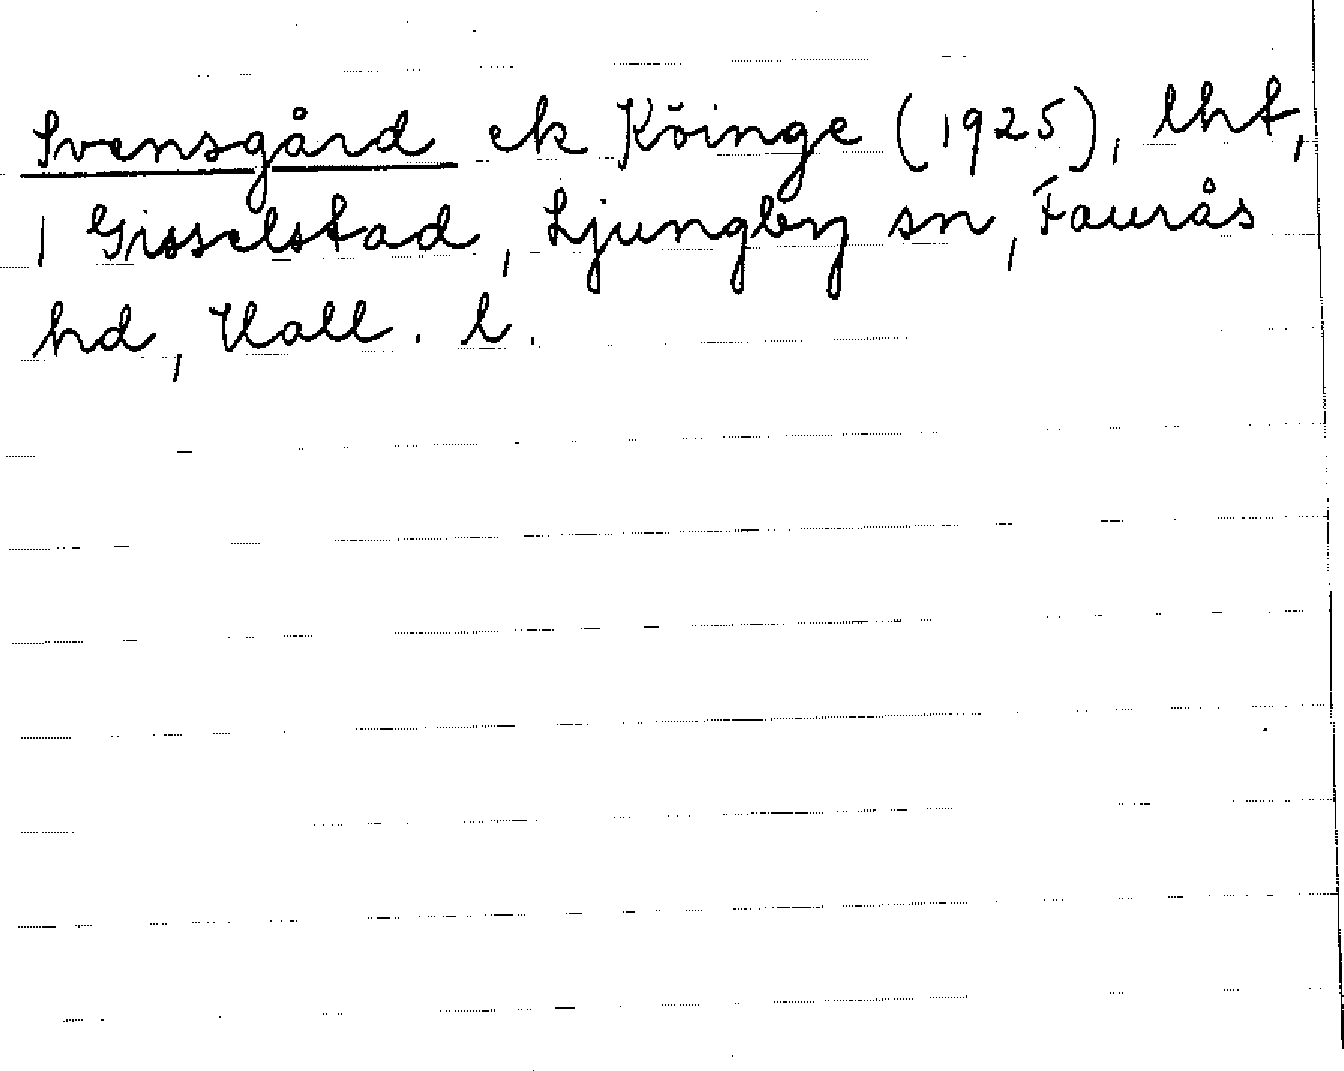 Svensgård ek Köinge (1925), lht,
1 Gisselstad, Ljungby sn, Faurås
hd, Hall. l.